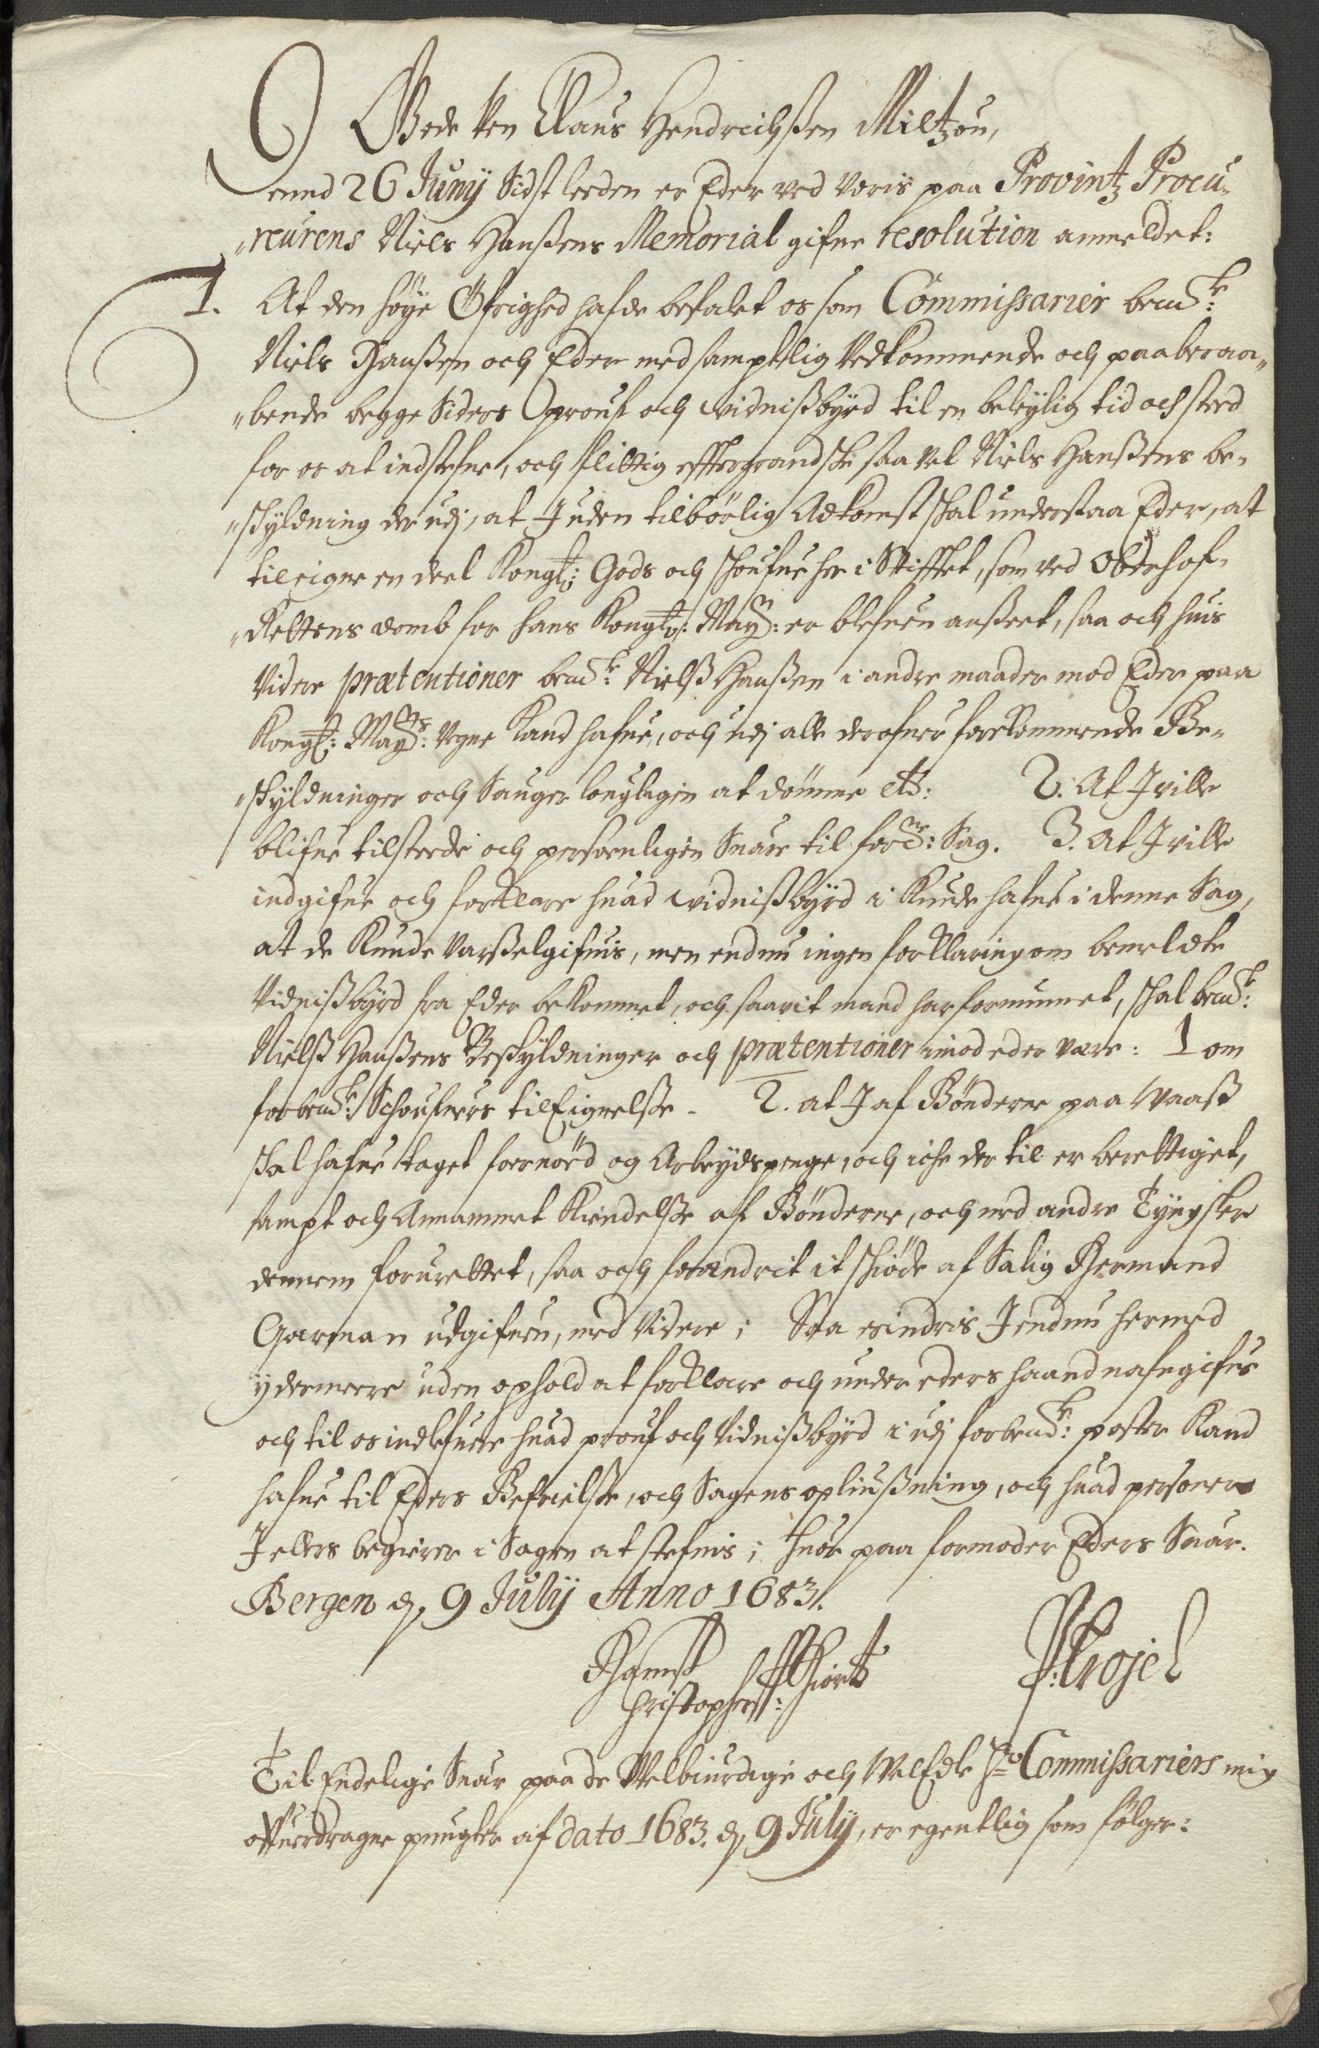 Gode Ven Claus Hendrichsen Miltzou,
ennd 26 Junij Sidst leeden er Eder ved voris paa Provintz Procu¬
reurens Niels Hanßens Memorial gifne resolution anmeldet:
1. At den høye Øfrighed hafde befalet os som Commissarier bemte:
Niels Hanßen och Eder med samptlig Vedkommende och paaberaa¬
bende begge Siders prouf och vidnißbyrd til en beleylig tid och sted
for os at indstefne, och flittig effttergrandske saa vel Niels Hanßens be¬
skyldning der udj, at J uden tilbørlig Adkomst skal understaa Eder, at
tileigne en deel Kongl: Gods och schoufue her i Stifftet, som ved Oberhof¬
Rettens domb for hans Kongl: May: er blefuen anßeet, saa och huis
Videre prætentioner bemte: Nielß Hanßen i andre maader mod Eder paa
Kongl: Mayts: Vegne Kand hafue, och udj alle derofuer forekommende Be¬
skyldninger och Sauger louglegen at dømme etc: 2. At J ville
blifue tilstede och persoenligen Suare til forne: Sag. 3. At J ville
indgifue och forklare huad vidnißbyrd i Kunde hafue i denne Sag,
at de Kunde Varßelgifuis, men endnu ingen forklaring om bemelte
Vidnißbyrd fra Eder bekommet, och saavit mand har fornummet, skal bemte:
Nielß Hanßens Beskyldninger och prætentioner imod eder være: 1 om
forbemte: Schoufuers tilEignelße. 2. at J af Bønderne paa Waaß
skal hafue taget foernød og Arbeydspenge, och iche der til er berettiget,
sampt och Annammet Kiendelße af Bønderne, och med andre Tyngsler
dennem forurettet, saa och forandrit it skiøde af Salig Hermand
Garman udgifuen, med Videre; Saa erindris J endnu hermed
ydermeere uden ophold at forklare och under eders haand nafngifue
och til os indlefuere huad prouf och Vidnißbyrd i udj forbemte: poster Kand
hafue til Eders Befrielße, och Sagens opliußning, och huad persoener
J ellers begierer i Sagen at stefnis; huor paa formoder Eders Suar.
Bergen d, 9 Julij Anno 1683.
Christopherß: Hiort P: Trojel
Til Endelige Suar paa de Welbiurdige och WelEdle Hr: Commissariers mig
offuerdragne pungter af dato 1683. d, 9 Julij, er egentlig som følger: